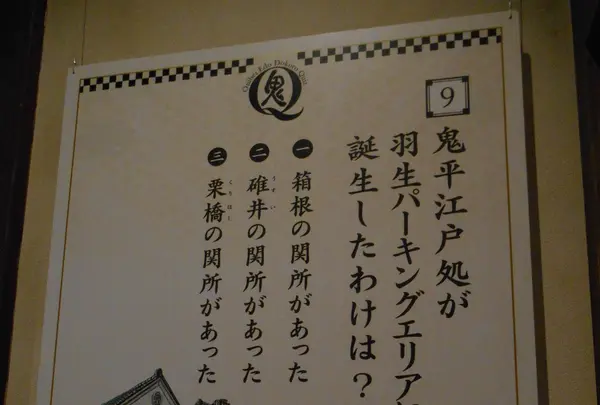 Onihei Edo Dokoro Quiz
鬼
Q
9
鬼平江戸処が
羽生パーキングエリア
誕生したわけは？
一 箱根の関所があった
二 碓井の関所があった
うすい
三 栗橋の関所があった
くりはし